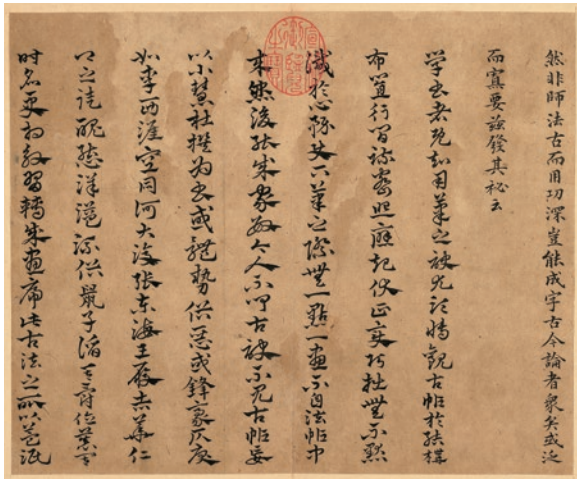 然非師法古而用功深豈能成字古今論者衆矣或泛
而寡要兹發其秘云
学书者既知用筆之訣尤須博觀古帖於結構
布置行間疏密照應起伏正变巧拙無不默
識於心務使下筆之際無一點一畫不自法帖中
來然後能成家數今人不聞古訣不見古帖妄
以小慧杜撰為书或體勢俱惡或鋒毫反戾
如李西涯空同何大復張東海王履吉華仁
之徒醜態洋溢
时名更相教習轉成畫此古法之所以益泯